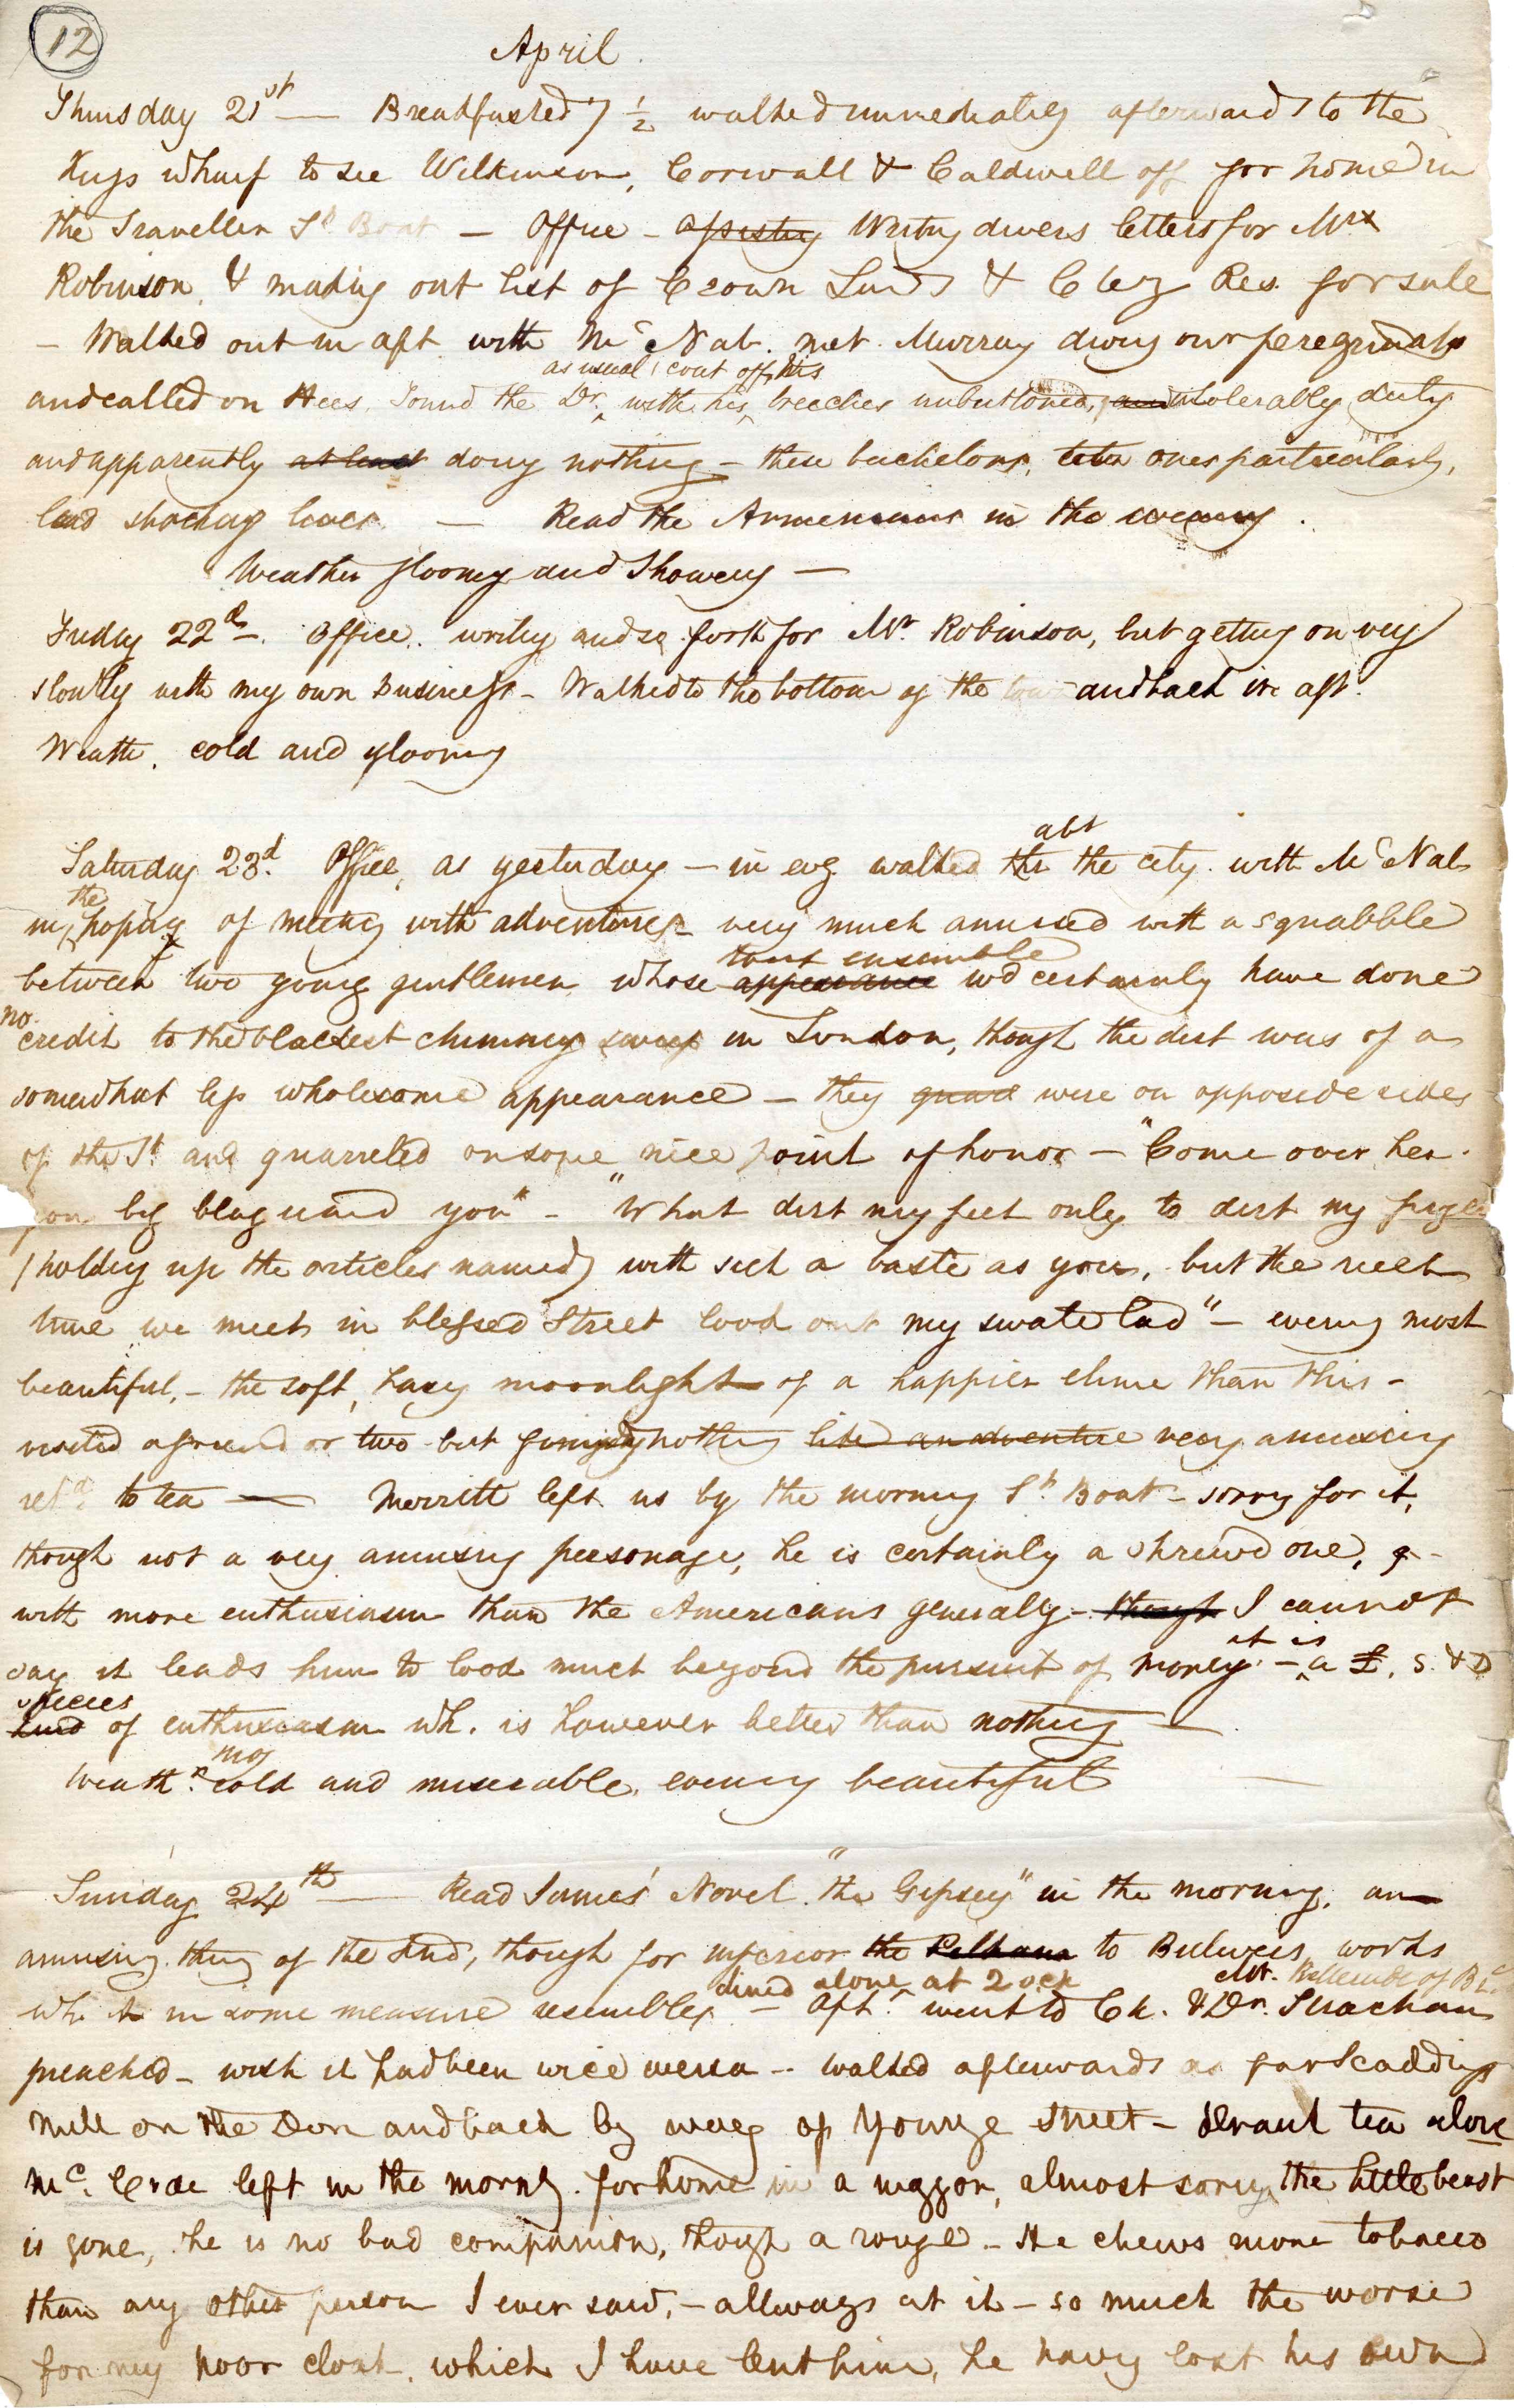 12
April
Thursday 21st — Breakfasted 7 1/2 walked immediately afterwards to the
Kings wharf to see Wilkinson, Corwall & Caldwell off for home in
the Traveller St Boat — Office — assisting Writing divers letters for Mr
Robinson, & making out list of Crown Lands & Clergy Res. for sale
— Walked out in aft with McNab. met Murray during our peregrinats
as usual, coat off, his
and called on Hees, found the Dr. with his breeches unbuttoned, and intolerably dirty
and apparently at least doing nothing — these bachelors, ones particularly,
lead shocking lives — Read the Armenians in the evening.
Weather gloomy and Showery —
Friday 22d — Office. writing and so forth for Mr. Robinson, but getting on very
slowly with my own Business — Walked to the bottom of the town and back in aft.
Weathr. cold and gloomy
abt
Saturday 23d. Office, as yesterday — in evg walked thr the city with McNab
the
in hoping of meeting with adventures — very much amused with a squabble
tout ensemble
between two young gentlemen whose appearance wd certainly have done
no
credit to the blackest chimney sweep in London, though the dirt was of a
somewhat less wholesome appearance — they quar were on opposide sides
of the St. and quarreled on some nice point of honor — "Come over her.
you big blaguard you" — "What dirt my feet only to dirt my fingers
(holding up the articles named) with sich a baste as you, but the nixt
time we meet in blessed Street look out my swate lad" — evening most
beautiful, — the soft, hazy moonlight of a happier clime than this —
visited a friend or two but finding nothing like an adventure very amusing
retd. to tea — Merritt left us by the morning St. Boat — sorry for it,
though not a very amusing personage, he is certainly a shrewd one, &
with more enthusiasm than the Americans generally — though I cannot
it is
say it leads him to look much beyond the pursuit of money — a £. S. & D
species
kind of enthusiasm wh. is however better than nothing —
mg
Weathr. cold and miserable, evening beautiful —
Sunday 24th — Read James' Novel "the Gipsey" in the morning, an
amusing thing of the kind, though far inferior the Pelham to Bulwers works
dined alone at 2 ock Mr. of
wh it in some measure resembles — Aft. went to Ch. & Dr. Strachan
preached — wish it had been vice versa — walked afterwards as far Scaddings
Mill on the Don and back by way of Yonge Street — drank tea alone
McCrae left in the morng. for home in a waggon, almost sorry the little beast
is gone, he is no bad companion, though a rouge — He chews more tobacco
than any other person I ever saw, — allways at it — so much the worse
for my poor cloak, which I have lent him, he having lost his own